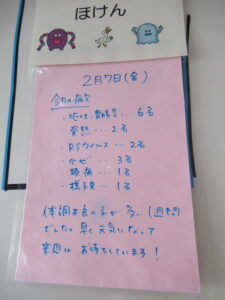 ほけん
2月7日(金)
今日の病欠
・嘔吐、胃腸炎 … 6名
・発熱 … 2名
・RSウイルス … 2名
・かぜ … 3名
・頭痛 … 1名
・様子見 … 1名
体調不良の子が多い1週間
でした。早く元気になって
来週は お待ちしています！